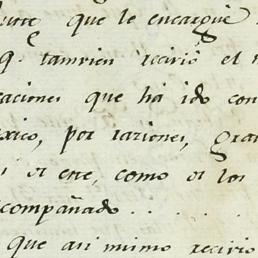 que le encargue
q. tamvien recivió el
caciones que ha ido con
xico, por razones, gra
el este, como el los
compañado . . . .
que asi mismo recivio